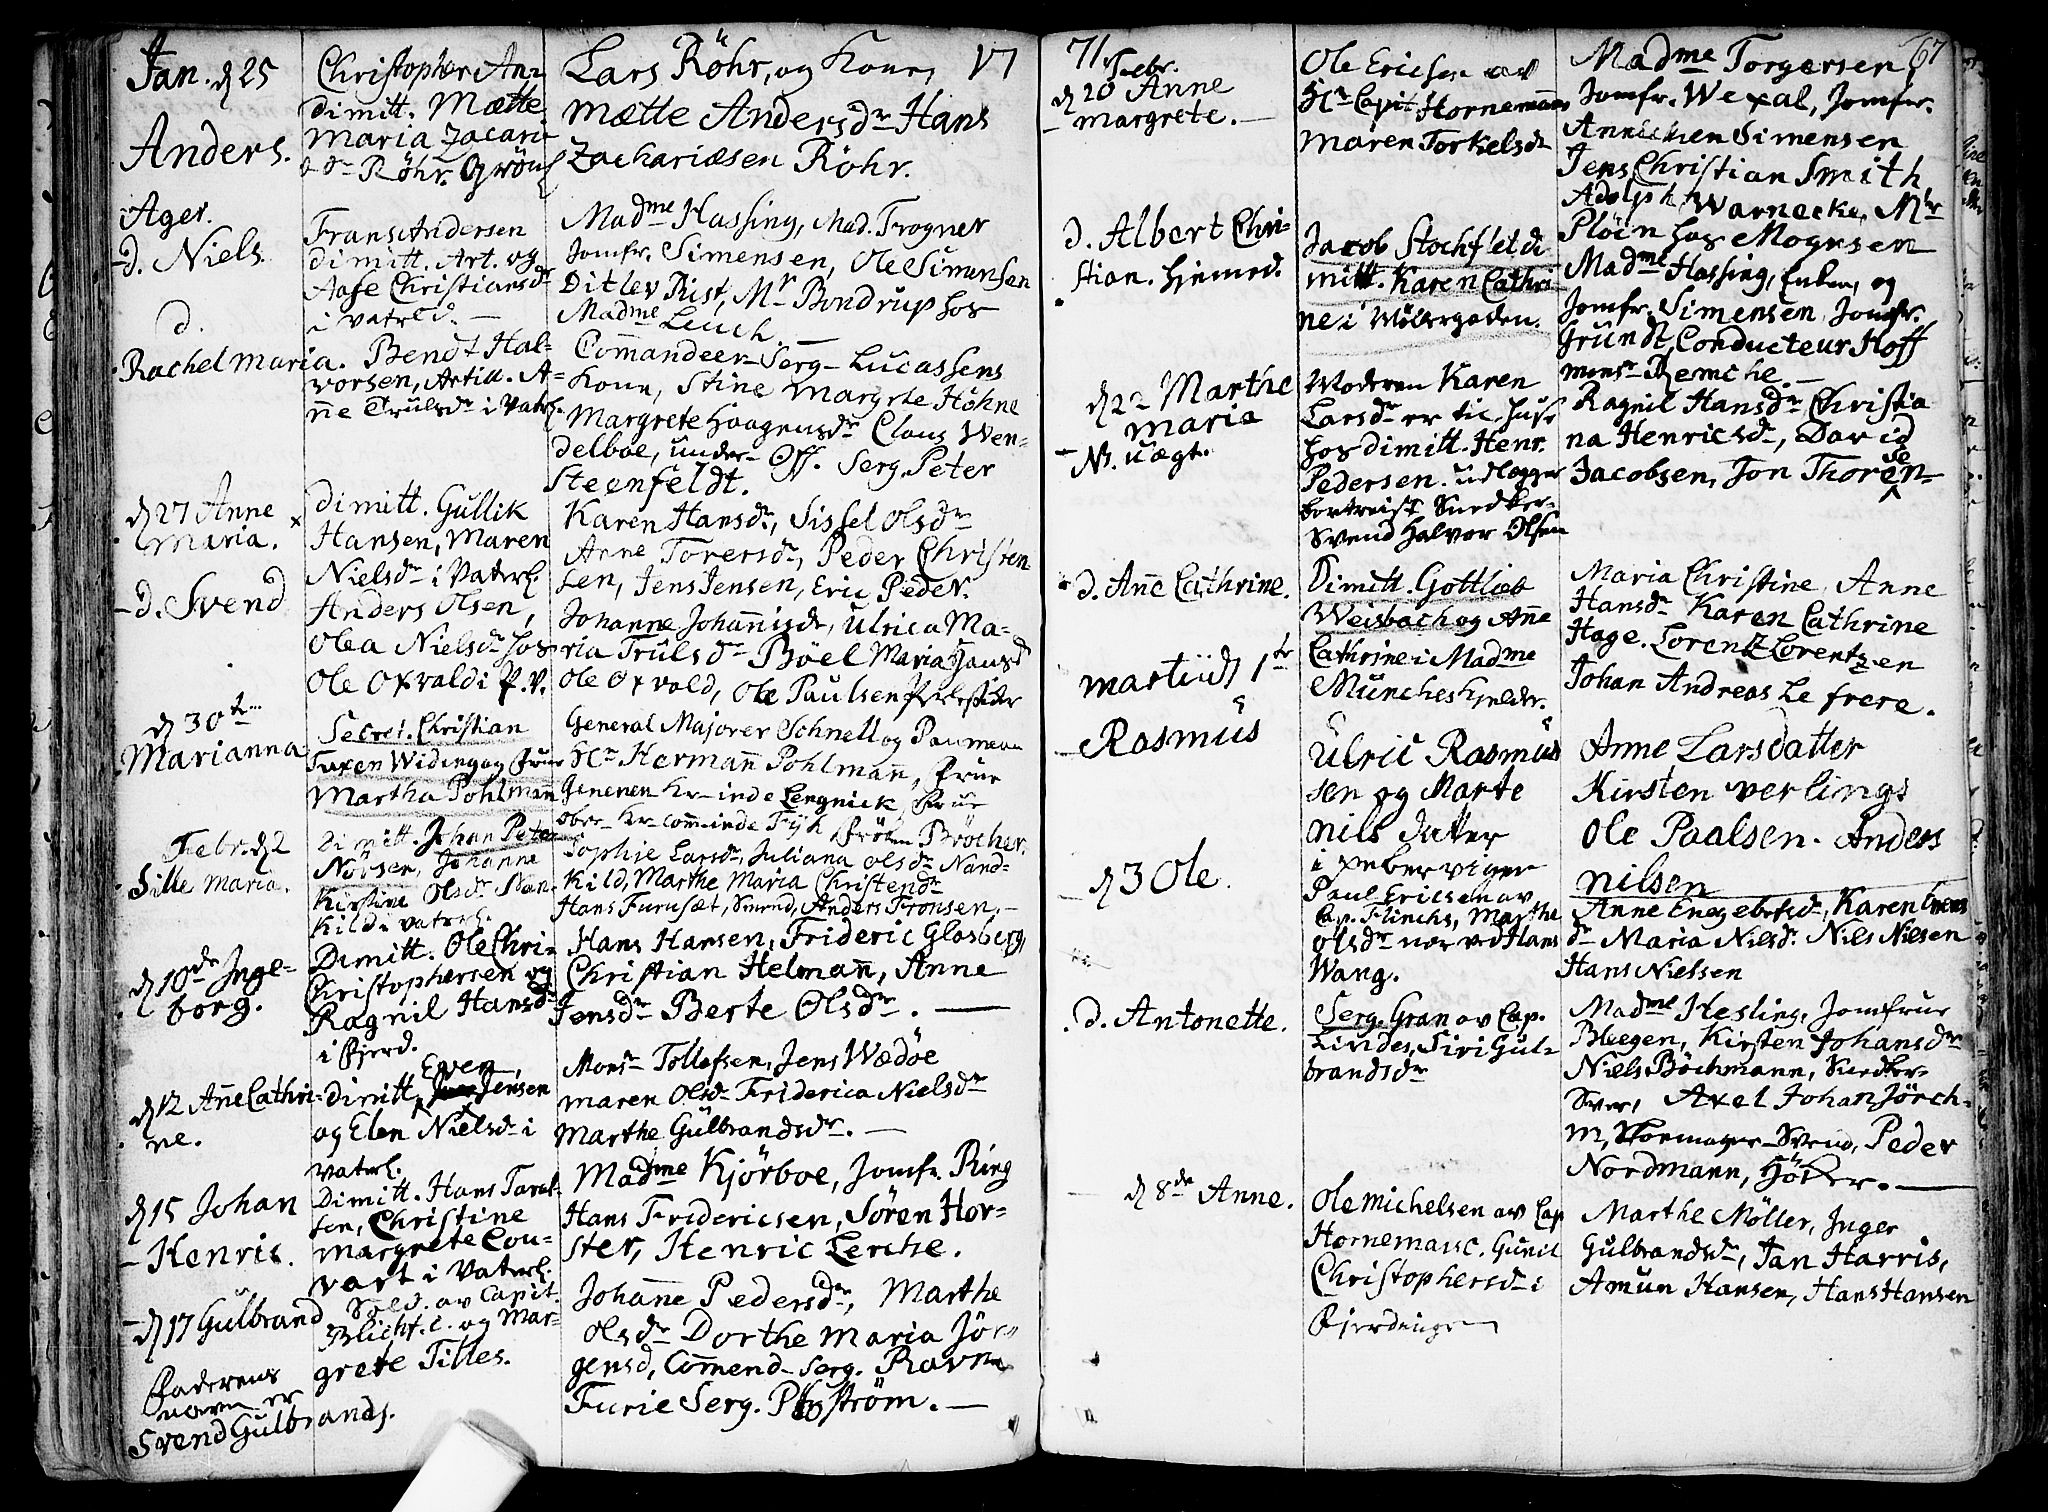 17
Jan. d 25
Anders.
Christopher An-
dimitt. Mætte
Maria Zacari-
Dr Röhr. Grönl
Lars Röhr, og Kone,
Mætte Andersdr Hans
Zachariæsen Röhr.
Ager.
d. Niels
Frans Andersen
dimitt. Art. og
Aase Christiansdr
i Vatrld.
Madme Hassing, Mad. Frogner
Jomfr. Simensen, Ole Simensen
Ditlev Rist, Mr Bondrup hos
Madme Leuch.
d.
Rachel Maria.
Bendt Hal-
vorsen, Artill. A-
nne Trulsdr i Vatrl.
Commandeer-Serg- Lucassens
Kone, Stine Margrte Höhne
Margrete Haagensdr Claus Wen-
delboe, under-Off. Serg. Peter
Steenfeldt.
d 27 Anne
Maria.
dimitt. Gullik
Hansen, Maren
Nielsdr i Vaterl.
Karen Hansdr, Sissel Olsdr
Anne Torersdr, Peder Christen
sen, Jens Jensen, Eric Peder.
d. Svend
Anders Olsen,
Olea Nielsdr hos
Ole Oxvald i P.V.
Johanne Johannisdr, Ulrica Ma-
ria Trulsdr Böel Maria Hansd
Ole Oxvold, Ole Paulsen
d 30te
Marianna
Secret. Christian
Faxen Widing og Frue
Martha Pohlmann
General Majorer Schnell og Paumann
Hr Hermann Pohlmann, Frue
Lengnick, Frue
Fyh Fröken Bröcher.
Febr. d 2
Sille Maria.
Dimitt. Johan Peter
Nörsen, Johanne
Kirstine Olsdr Nan-
kild i Vaterl.
Sophie Larsdr, Juliana Olsdr Nand-
kild, Marthe Maria Christendr
Hans Furusæt, Svend, Anders Fronsen.
d 10de Inge-
borg.
Dimitt. Ole Chri-
Christophersen og
Ragnil Hansdr
i Fjerd.
Hans Hansen, Frideric Glasberg,
Christian Helmann, Anne
Jensdr Berte Olsdr.
d 12 Anne Cathri-
ne.
Even
dimitt. Jensen
og Elen Nielsd i
Vaterl.
Monsr Tollefsen, Jens Wædöe
Maren Olsdr Friderica Nielsdr
Marthe Gulbrandsdr.
d 15 Johan
Henric.
Dimitt. Hans Tarel-
sen, Christine
Margrete Cou-
vart i Vaterl.
Madme Kjörboe, Jomfr. Ring
Hans Fridericsen, Sören Hor-
ster, Henric Lerche.
d 17 Gulbrand
Faderens
navn er
Svend Gulbrands.
Sold. av Capit.
Blichf. C. og Mar-
grete Tilles.
Johanne Pedersdr, Marthe
Olsdr Dorthe Maria Jör-
gensd, Commend-Serg. Ravn
Furie Serg. Ström.
71
67
Febr.
d 20 Anne
Margrete.
Ole Ericsen av
Hr Capit Hornemanns
Maren Torkelsdr
Madme Torgersen,
Jomfr. Wexal, Jomfr.
Annichen Simensen
Jens Christian Smith
Adolph Warnecke, Mr
Plöin hos Mogensen
d. Albert Chri-
stian. hjemed.
Jacob Stochflet di
mitt. Karen Cathri
ne i Möllergaden.
Madme Hassing, Enken, og
Jomfr. Simensen, Jomfr.
Grundt, Conducteur Hoff
Monsr Remche.
d 22 Marthe
Maria
NB. uægt.
Moderen Karen
Larsdr er til huse
hos dimitt. Henr.
Pedersen. udlægger
bortreist Snedker-
Svend Halvor Olsen
Ragnil Hansdr Christia
na Henricsdr, David
Jacobsen, Jon Thoresen
d. Anne Cathrine.
Dimitt. Gottlieb
Weisbach og Anne
Cathrine i Madme
Münches kjelder.
Maria Christine, Anne
Hansdr Karen Cathrine
Hage. Lorentz Lorentzen
Johan Andreas Le frere.
Martii d 1te
Rasmus
Ulric Rasmus
sen og Marte
Nils datter
i peberviger
Anne Larsdatter
Kirsten Verlings
Ole Paalsen. Anders
Nilsen
d 3 Ole.
Paul Ericsen av
Cap. Flinchs, Marthe
Olsdr nor ved Hans
Wang.
Anne Engebretsdr, Karen Evens
dr Maria Nilsdr. Nils Nilsen
Hans Nielsen
d. Antonette.
Serg. Gran av Cap.
Lindes, Siri Gul-
brandsdr
Madme Hesling, Jomfrue
Bleegen, Kirsten Johansdr
Niels Böchmann, Snedker-
Sven, Axel Johan Jörch-
m, Skomager-Svend, Peder
Nordmann, Höker.
d 8de Anne.
Ole Michelsen av Cap
Hornemans C. Gunil
Christophersdr i
Fjerdingen
Marthe Möller, Inger
Gulbrandsdr, Jan Harris,
Amun Hansen, Hans Hansen